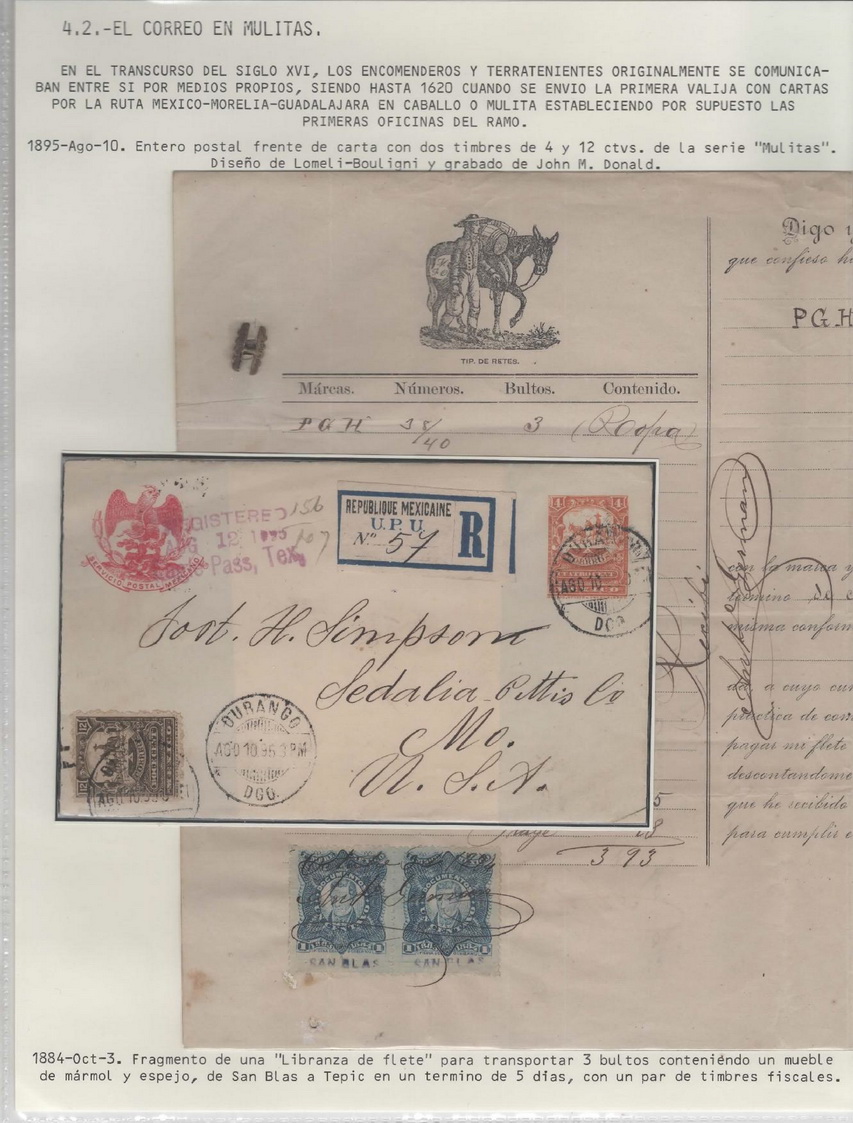 4.2.-EL CORREO EN MULITAS.
EN EL TRANSCURSO DEL SIGLO XVI, LOS ENCOMENDEROS Y TERRATENIENTES ORIGINALMENTE SE COMUNICA-
BAN ENTRE SI POR MEDIOS PROPIOS, SIENDO HASTA 1620 CUANDO SE ENVIO LA PRIMERA VALIJA CON CARTAS
POR LA RUTA MEXICO-MORELIA-GUADALAJARA EN CABALLO O MULITA ESTABLECIENDO POR SUPUESTO LAS
PRIMERAS OFICINAS DEL RAMO.
1895-Ago-10. Entero postal frente de carta con dos timbres de 4 y 12 ctvs. de la serie "Mulitas".
Diseño de Lomeli-Bouligni y grabado de John M. Donald.
Digo y
que confieso ha
PGH
TIP. DE RETES.
Márcas. Números. Bultos. Contenido.
PGH 38/40 3 (Ropa)
REGISTERED 156
12 1895 107
Pass, Tex.
SERVICIO POSTAL MEXICANO
REPUBLIQUE MEXICAINE
U.P.U.
Nº 57 R
4
AGO 10
DGO.
Recibí
con la marca y
termino de c
misma conform
da, a cuyo cum
práctica de com
pagar mi flete
descontandome
que he recibido
para cumplir c
Post. H. Simpson
Sedalia Pettis Co
Mo.
U. S. A.
12
DURANGO
AGO 10.95 3 PM
DGO.
AGO 10.95
5
18
3 93
DOCUMENTOS DOCUMENTOS
SAN BLAS SAN BLAS
1884-Oct-3. Fragmento de una "Libranza de flete" para transportar 3 bultos conteniéndo un mueble
de mármol y espejo, de San Blas a Tepic en un termino de 5 dias, con un par de timbres fiscales.